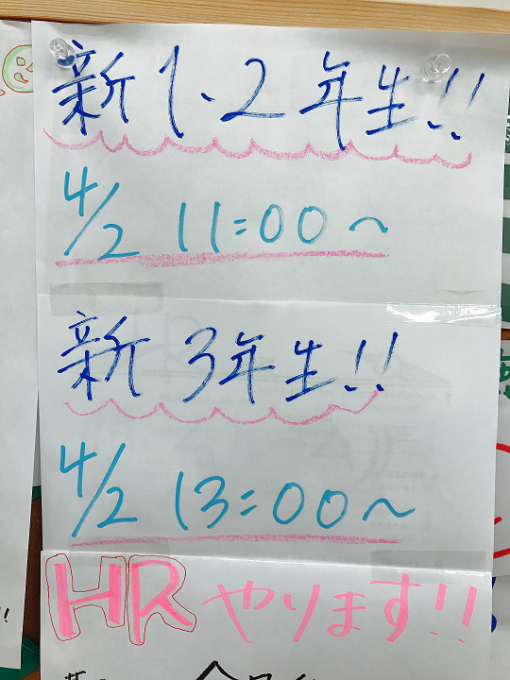 新1、2年生!!
4/2 11:00～
新3年生!!
4/2 13:00～
HRやります!!